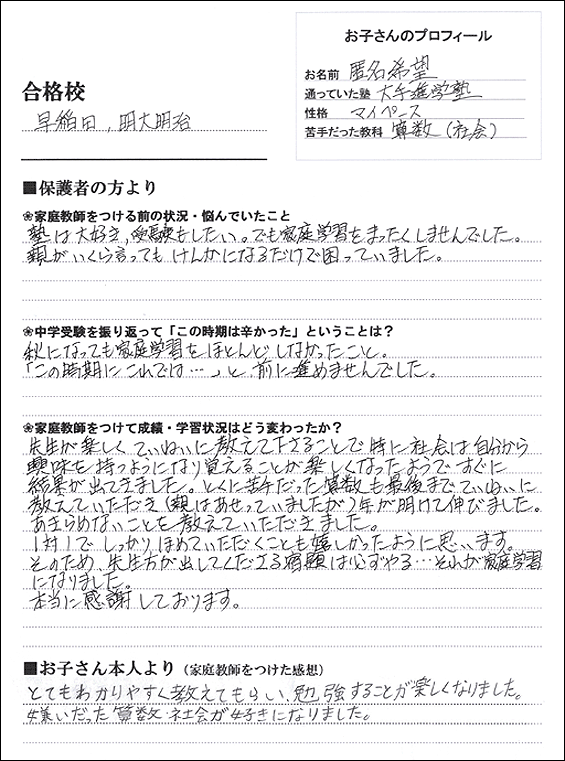 お子さんのプロフィール
お名前 匿名希望
通っていた塾 大手進学塾
性格 マイペース
苦手だった教科 算数(社会)
合格校
早稲田,明大明治
■保護者の方より
❀家庭教師をつける前の状況・悩んでいたこと
塾は大好き,受験もしたい。でも家庭学習をまったくしませんでした。
親がいくら言っても けんかになるだけで困っていました。
❀中学受験を振り返って「この時期は辛かった」ということは?
秋になっても家庭学習をほとんどしなかったこと。
「この時期に これでは…」と 前に進めませんでした。
❀家庭教師をつけて成績・学習状況はどう変わったか?
先生が楽しく ていねいに教えて下さることで 特に社会は自分から
興味を持つようになり覚えることが楽しくなったようで すぐに
結果が出てきました。とくに苦手だった算数も最後までていねいに
教えていただき(親はあせっていましたが)年が明けて伸びました。
あきらめないことを教えていただきました。
1対1で しっかりほめていただくことも嬉しかったように思います。
そのため、先生方が出してくださる宿題は必ずやる…それが家庭学習
になりました。
本当に感謝しております。
■お子さん本人より(家庭教師をつけた感想)
とてもわかりやすく教えてもらい、勉強することが楽しくなりました。
嫌いだった算数・社会が好きになりました。